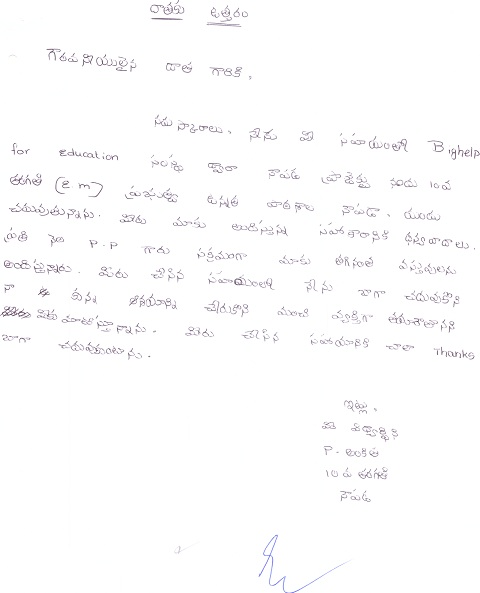 దాతకు ఉత్తరం
గౌరవనీయులైన దాత గారికి,
నమస్కారాలు. నేను మీ సహాయంతో Bighelp
for education సంస్థ ద్వారా నౌపడ ప్రాజెక్టు నందు 10వ
తరగతి (E.m) ప్రభుత్వ ఉన్నత పాఠశాల నౌపడా. యందు
చదువుతున్నాను. మీరు మాకు అందిస్తున్న సహకారానికి ధన్యవాదాలు.
ప్రతి నెల P.P గారు సక్రమంగా మాకు తగినంత వస్తువులను
అందిస్తున్నారు. మీరు చేసిన సహాయంతో నేను బాగా చదువుకొని
నా కున్న ఆశయాన్ని చేరుకొని మంచి వ్యక్తిగా
మీరు చేసిన సహాయానికి చాలా Thanks
బాగా చదువుకుంటాను.
ఇట్లు,
మీ విద్యార్థిని
P. అంకిత
10వ తరగతి
నౌపడ